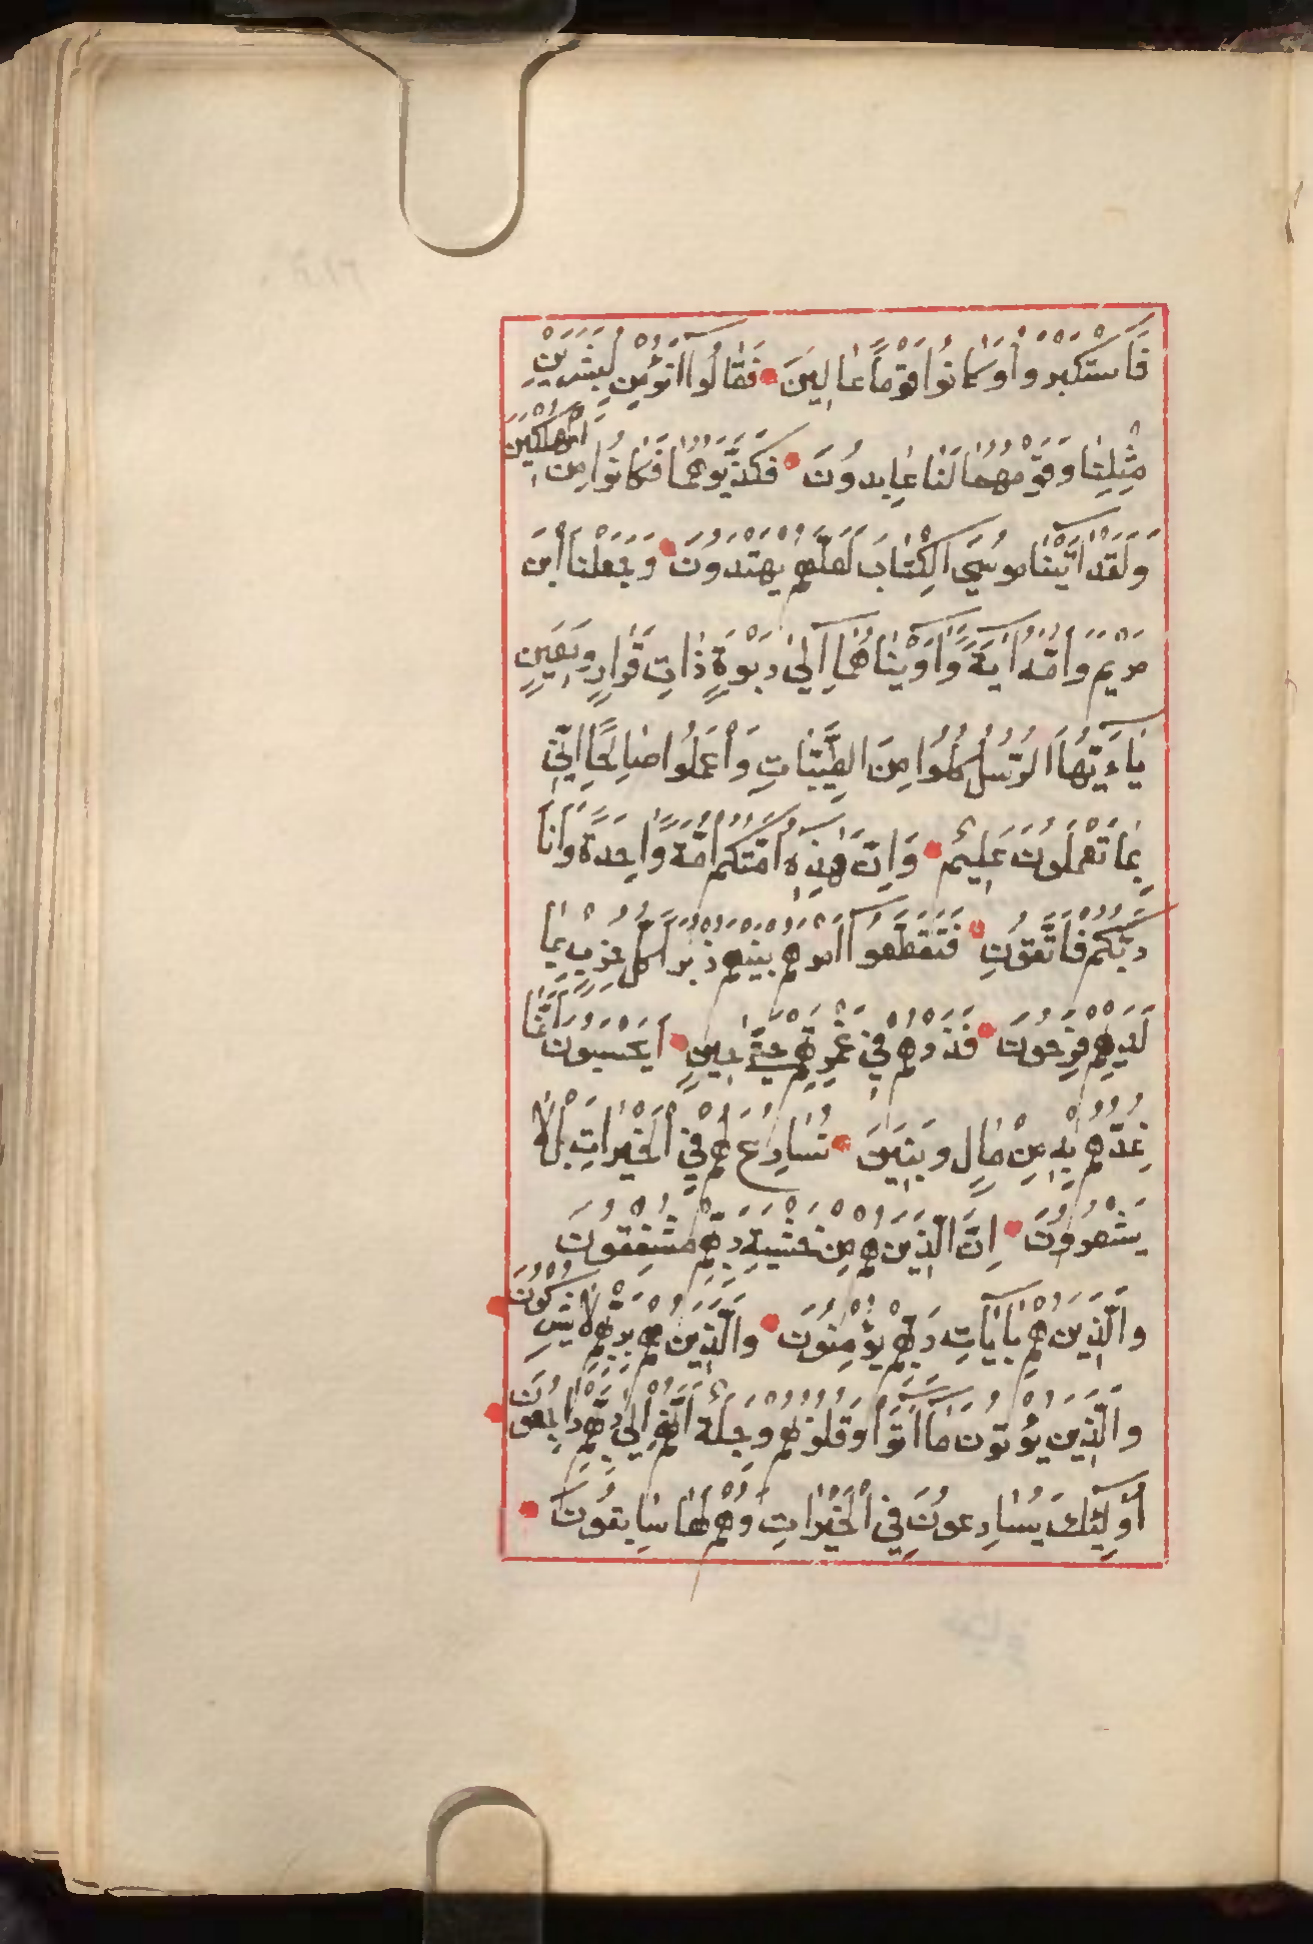 فَاسْتَكْبَرُوْا وَكَانُوْا قَوْمًا عَالِيْنَ فَقَالُوْآ اَنُؤْمِنُ لِبَشَرَيْنِ
مِثْلِنَا وَقَوْمُهُمَا لَنَا عَابِدُوْنَ فَكَذَّبُوْهُمَا فَكَانُوْا مِنَ الْمُهْلَكِيْنَ
وَلَقَدْ اٰتَيْنَا مُوْسَى الْكِتٰبَ لَعَلَّهُمْ يَهْتَدُوْنَ وَجَعَلْنَا ابْنَ
مَرْيَمَ وَاُمَّهُ اٰيَةً وَّاٰوَيْنَاهُمَآ اِلٰى رَبْوَةٍ ذَاتِ قَرَارٍ وَمَعِيْنٍ
يَاءَيُّهَا الرُّسُلُ كُلُوْا مِنَ الطَّيِّبَاتِ وَاعْمَلُوْا صَالِحًا اِنِّيْ
بِمَا تَعْمَلُوْنَ عَلِيْمٌ وَاِنَّ هٰذِهٖٓ اُمَّتُكُمْ اُمَّةً وَّاحِدَةً وَاَنَا
رَبُّكُمْ فَاتَّقُوْنِ فَتَقَطَّعُوْآ اَمْرَهُمْ بَيْنَهُمْ زُبُرًا كُلُّ حِزْبٍ بِمَا
لَدَيْهِمْ فَرِحُوْنَ فَذَرْهُمْ فِيْ غَمْرَتِهِمْ حَتّٰى حِيْنٍ اَيَحْسَبُوْنَ اَنَّمَا
نُمِدُّهُمْ بِهٖ مِنْ مَالٍ وَبَنِيْنَ نُسَارِعُ لَهُمْ فِي الْخَيْرَاتِ بَلْ لَا
يَشْعُرُوْنَ اِنَّ الَّذِيْنَ هُمْ مِنْ خَشْيَةِ رَبِّهِمْ مُشْفِقُوْنَ
وَالَّذِيْنَ هُمْ بِاٰيَاتِ رَبِّهِمْ يُؤْمِنُوْنَ وَالَّذِيْنَ هُمْ بِرَبِّهِمْ لَا يُشْرِكُوْنَ
وَالَّذِيْنَ يُؤْتُوْنَ مَآ اٰتَوْا وَقُلُوْبُهُمْ وَجِلَةٌ اَنَّهُمْ اِلٰى رَبِّهِمْ رَاجِعُوْنَ
اُولٰٓئِكَ يُسَارِعُوْنَ فِي الْخَيْرَاتِ وَهُمْ لَهَا سَابِقُوْنَ